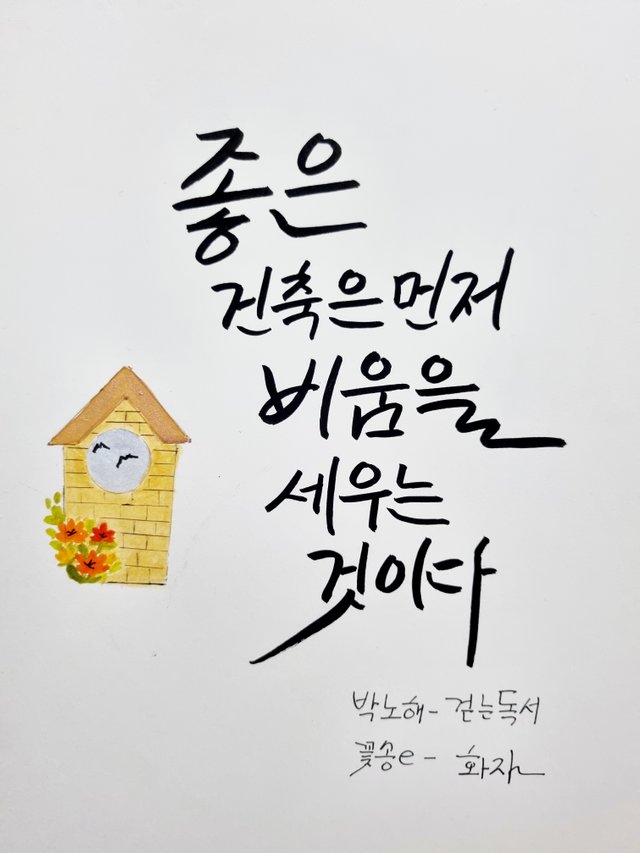 좋은
건축은 먼저
비움을
세우는
것이다
박노해 - 걷는독서
꽃송e - 화자